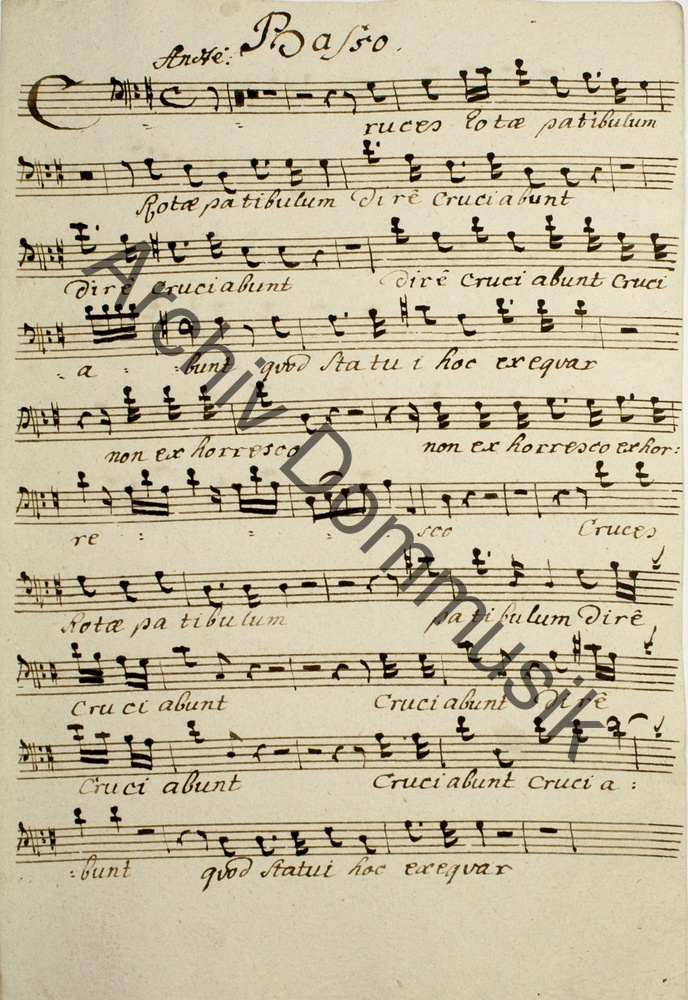 Basso.
Andte:
Cruces Rotæ patibulum
Rotæ patibulum dirê Cruciabunt
dirê cruciabunt dirê Cruciabunt Cruci
: a : bunt quod statui hoc exequar
non exhorresco non exhorresco exhor:
re : : : sco Cruces
Rotæ patibulum patibulum dirê
Cruciabunt Cruciabunt dirê
Cruciabunt Cruciabunt Crucia :
:bunt quod statui hoc exequar
Archiv Dommusik